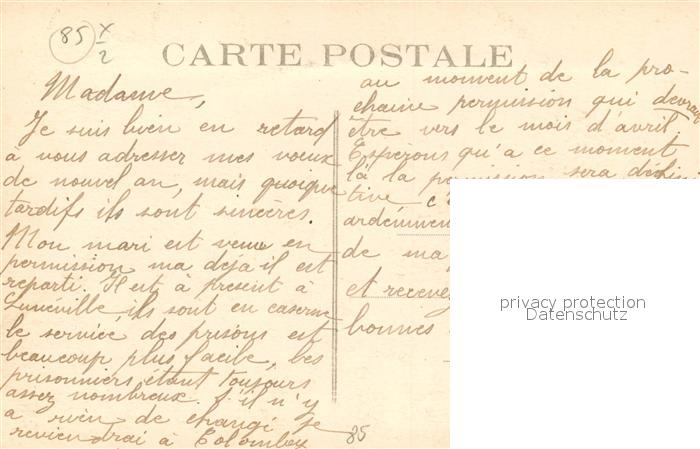 85 x/2
CARTE POSTALE
Madame,
Je suis bien en retard
à vous adresser mes voeux
de nouvel an, mais quoique
tardifs ils sont sincères.
Mon mari est venu en
permission ma déjà il est
reparti. Il est à présent à
Lunéville, ils sont en caserne
le service des prisons est
beaucoup plus facile, les
prisonniers étant toujours
assez nombreux. S'il n'y
a rien de changé je
reviendrai à Colombey
au moment de la pro-
chaine permission qui devrait
être vers le mois d'avril.
Espérons qu'a ce moment
là la permission sera défini
tive c
ardemment
de ma
et recevez
bonnes
85
privacy protection
Datenschutz